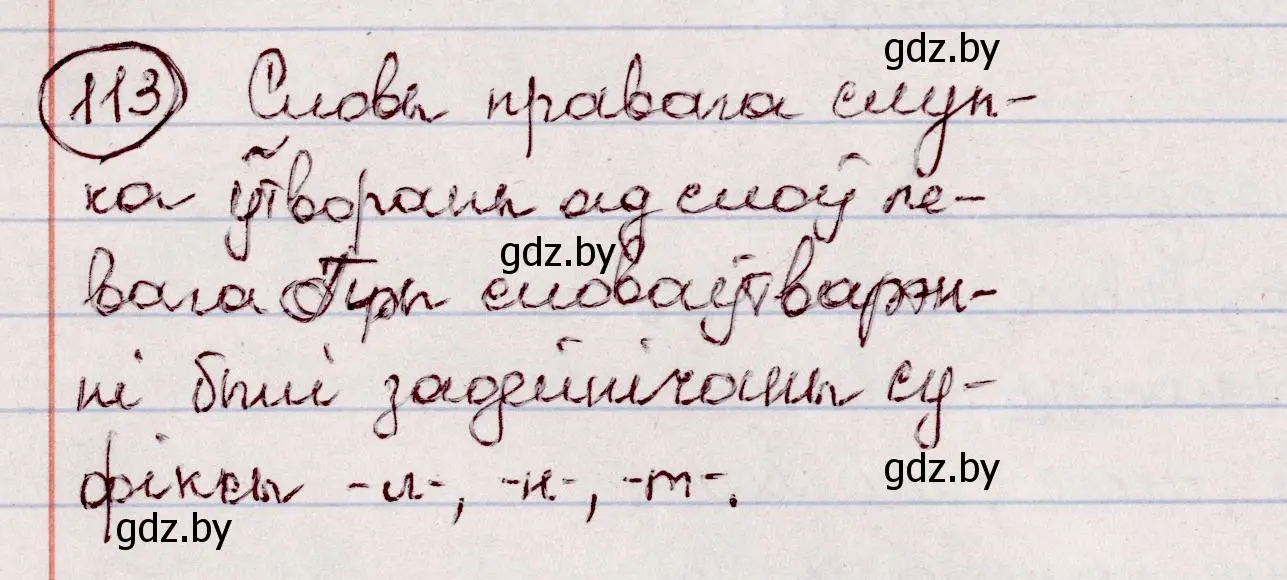 gdz.by
113 Словы правага слуп-
ка ўтвораны ад слоў ле-
gdz.by
вага. Пры словаўтварэн-
ні былі задзейнічаны су-
gdz.by
фіксы -л-, -н-, -т-.
gdz.by